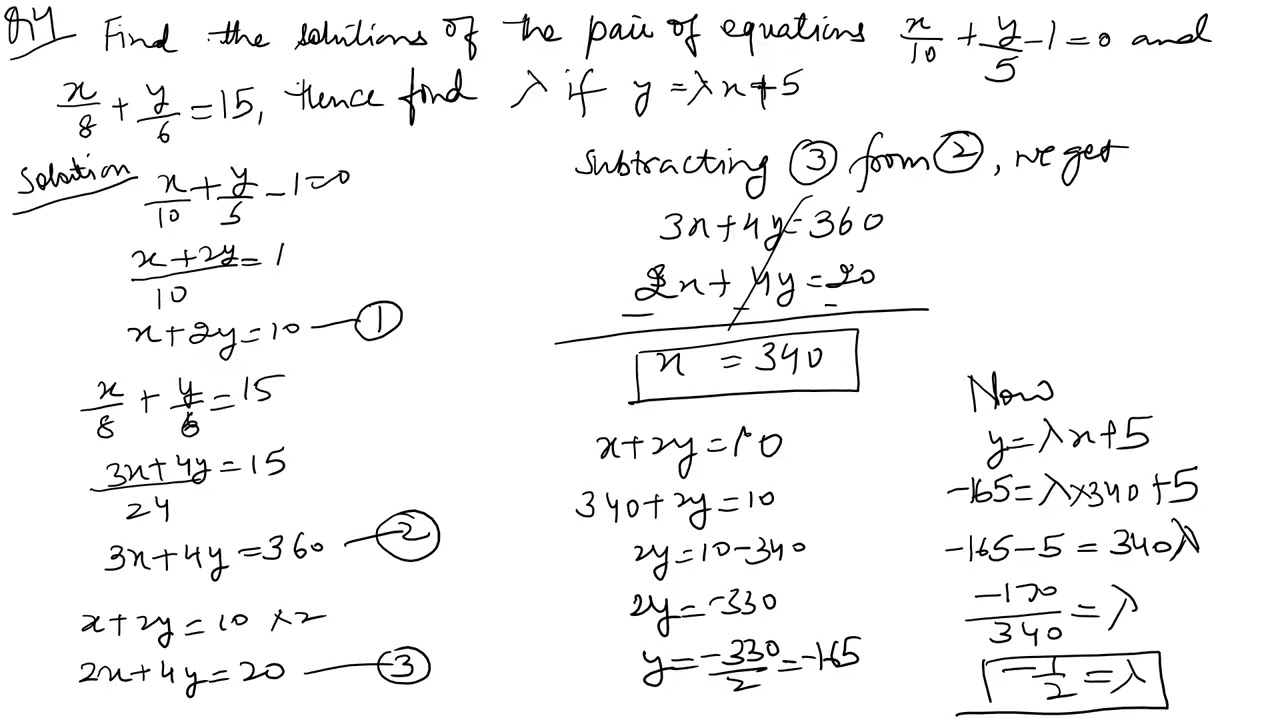 Q4 Find the solutions of the pair of equations x/10 + y/5 - 1 = 0 and
x/8 + y/6 = 15, Hence find λ if y = λx + 5
Solution
x/10 + y/5 - 1 = 0
(x + 2y)/10 = 1
x + 2y = 10 — ①
x/8 + y/6 = 15
(3x + 4y)/24 = 15
3x + 4y = 360 — ②
x + 2y = 10 × 2
2x + 4y = 20 — ③
Subtracting ③ from ②, we get
3x + 4y = 360
2x + 4y = 20
- - -
x = 340
x + 2y = 10
340 + 2y = 10
2y = 10 - 340
2y = -330
y = -330/2 = -165
Now
y = λx + 5
-165 = λ × 340 + 5
-165 - 5 = 340λ
-170/340 = λ
-1/2 = λ